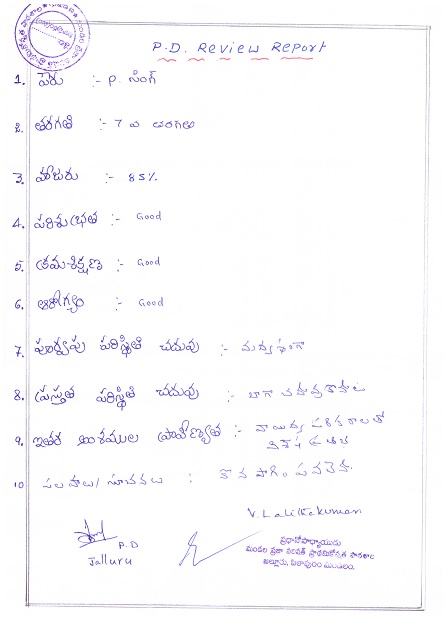 P.D. Review Report
1. పేరు :- P. సింగ్
2. తరగతి :- 7 వ తరగతి
3. హాజరు :- 85%
4. పరిశుభ్రత :- Good
5. క్రమశిక్షణ :- Good
6. ఆరోగ్యం :- Good
7. పూర్వపు పరిస్థితి చదువు :- మధ్యస్థంగా
8. ప్రస్తుత పరిస్థితి చదువు :- బాగా
9. ఇతర అంశముల ప్రావీణ్యత :-
10 సలహాలు/ సూచనలు :
V. Lalithakumari
P.D
Jalluru
ప్రధానోపాధ్యాయుడు
మండల ప్రజా పరిషత్ ప్రాథమికోన్నత పాఠశాల
జల్లూరు, పిఠాపురం మండలం.